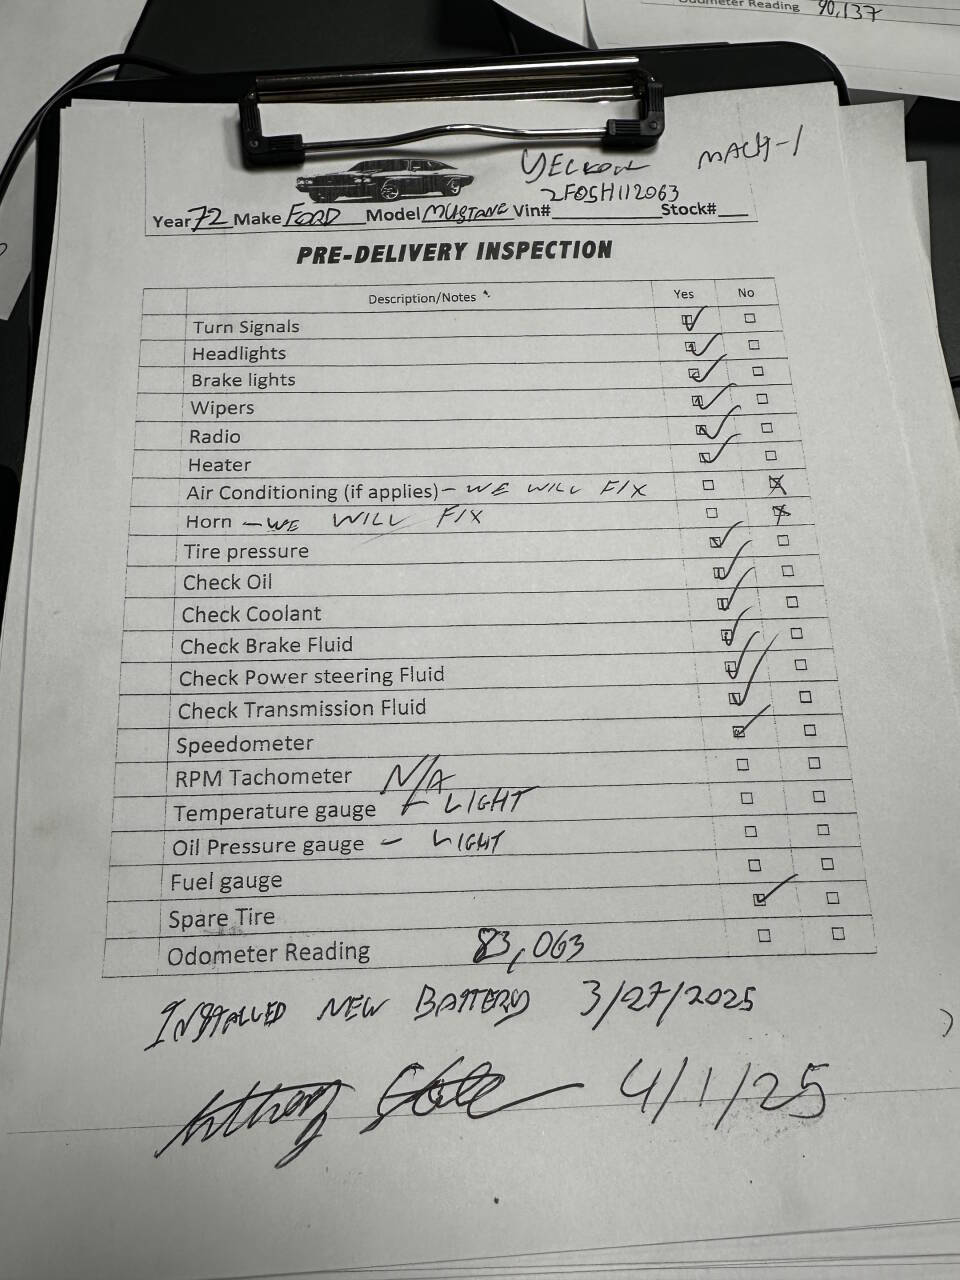 Odometer Reading 90,137
YELLOW MACH-1
2F05H112063
Year 72 Make FORD Model MUSTANG Vin# Stock#
PRE-DELIVERY INSPECTION
Description/Notes Yes No
Turn Signals
Headlights
Brake lights
Wipers
Radio
Heater
Air Conditioning (if applies) - WE WILL FIX
Horn - WE WILL FIX
Tire pressure
Check Oil
Check Coolant
Check Brake Fluid
Check Power steering Fluid
Check Transmission Fluid
Speedometer
RPM Tachometer N/A
Temperature gauge - LIGHT
Oil Pressure gauge - LIGHT
Fuel gauge
Spare Tire
Odometer Reading 83,063
INSTALLED NEW BATTERY 3/27/2025
4/1/25